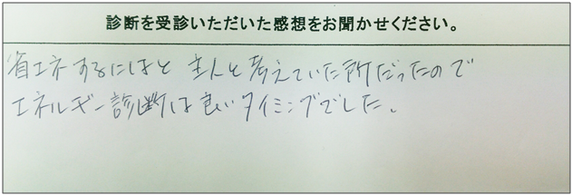 診断を受診いただいた感想をお聞かせください。
省エネするにはと主人と考えていた所だったので
エネルギー診断は良いタイミングでした。